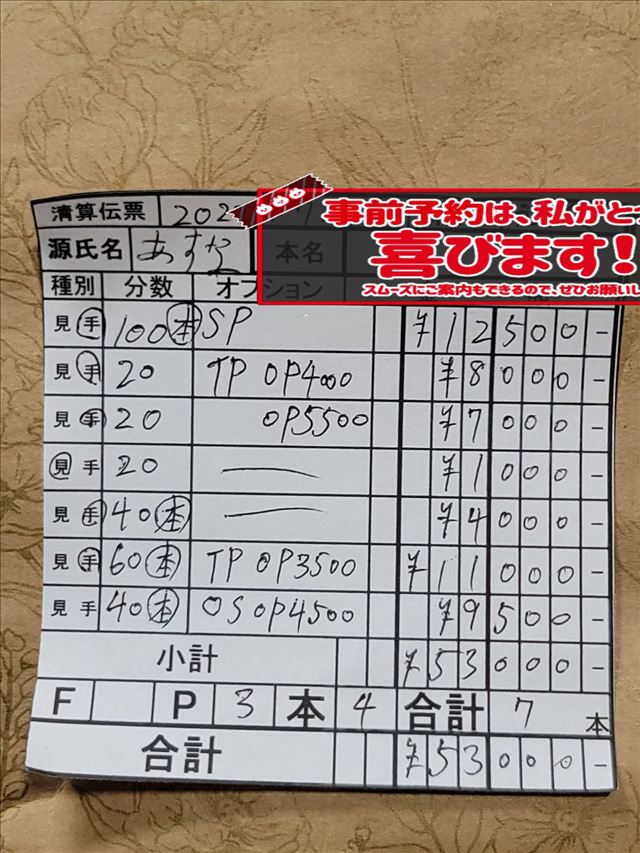 清算伝票 202
源氏名 あすな 本名
事前予約は、私がと
喜びます!
スムーズにご案内もできるので、ぜひお願いし
種別 分数 オプション
見 手 100 本 SP ¥12500-
見 手 20 TP OP4000 ¥8000-
見 手 20 OP5500 ¥7000-
見 手 20 ¥1000-
見 手 40 本 ¥4000-
見 手 60 本 TP OP3500 ¥11000-
見 手 40 本 OS OP4500 ¥9500-
小計 ¥53000-
F P 3 本 4 合計 7 本
合計 ¥53000-